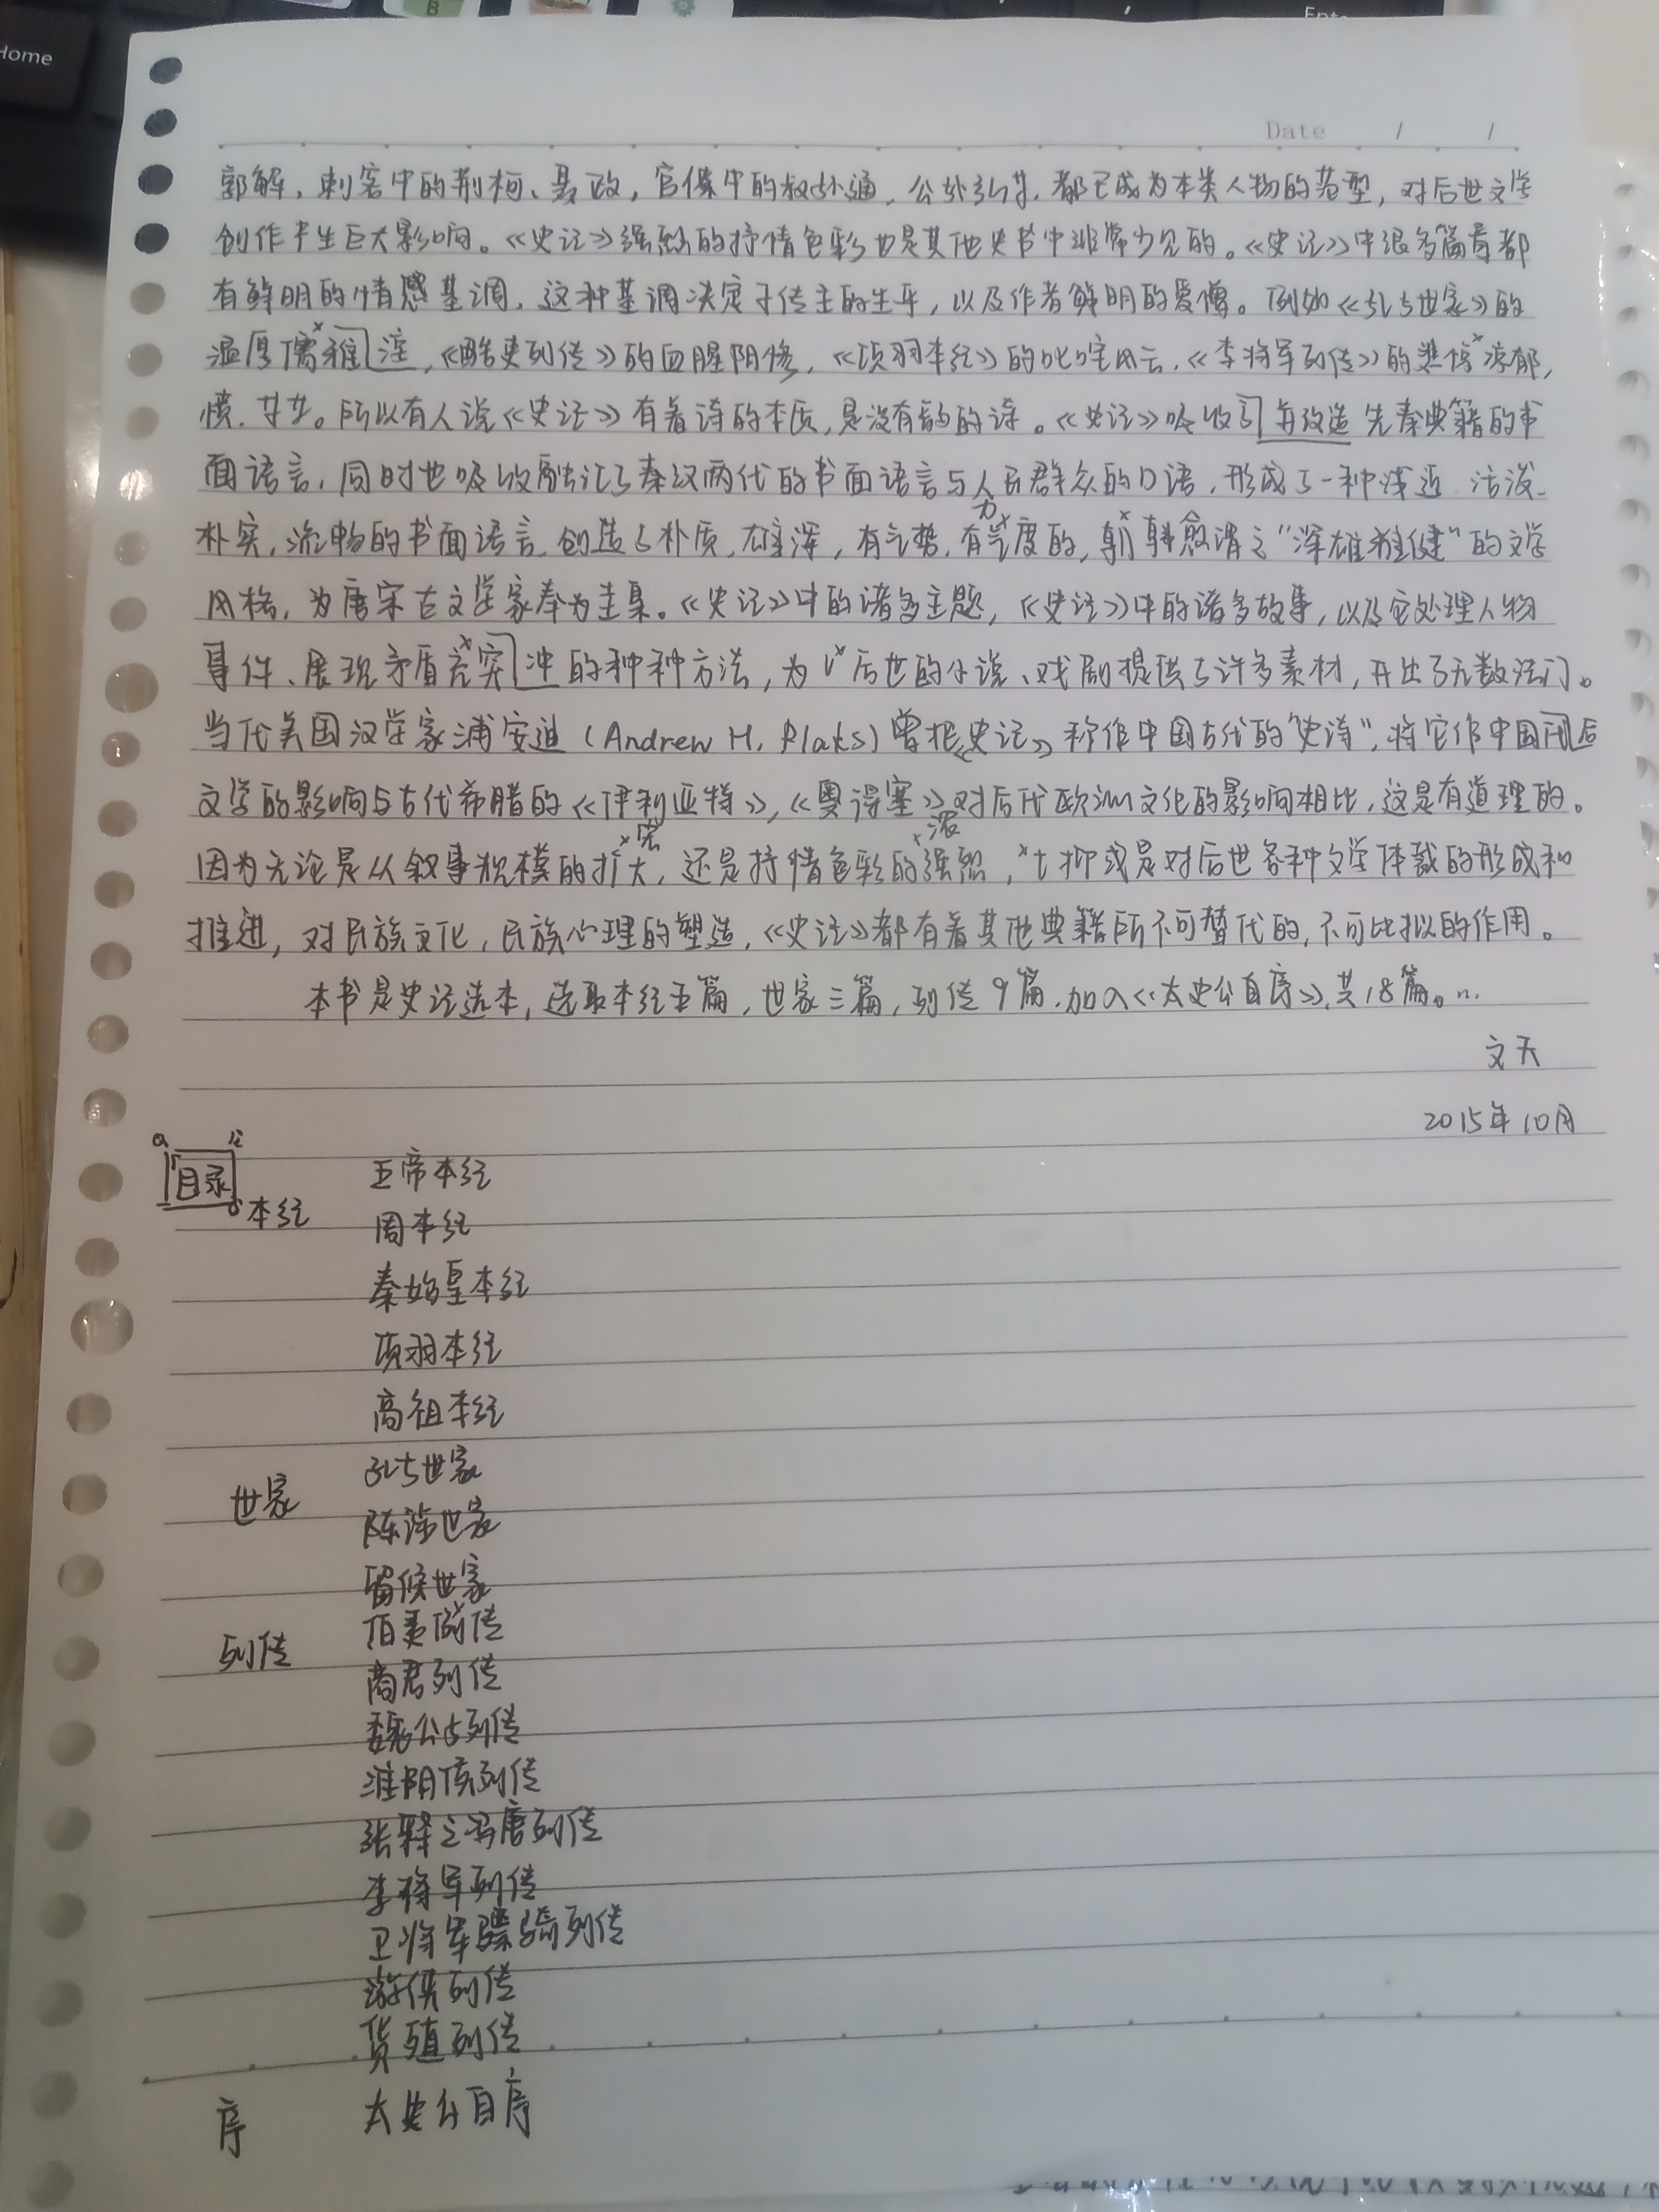 Home
B
Ente
Date / /
郭解,刺客中的荆柯、聂政,官僚中的叔孙通,公孙弘等,都已成为本类人物的范型,对后世文学
创作产生巨大影响。《史记》强烈的抒情色彩也是其他史书中非常少见的。《史记》中很多篇章都
有鲜明的情感基调,这种基调决定于传主的生平,以及作者鲜明的爱憎。例如《孔子世家》的
温厚儒雅淮,《酷吏列传》的血腥阴惨,《项羽本纪》的叱咤风云,《李将军列传》的悲惋凉郁,
愤,等等。所以有人说《史记》有着诗的本质,是没有韵的诗。《史记》吸收了并改造先秦典籍的书
面语言,同时也吸收融汇了秦汉两代的书面语言与人民群众的口语,形成了一种浅近 活泼、
朴实,流畅的书面语言,创造了朴质,雄深,有气势,有气力度的,韩愈谓之“深雄雅健”的文学
风格,为唐宋古文学家奉为圭臬。《史记》中的诸多主题,《史记》中的诸多故事,以及它处理人物
事件、展现矛盾突冲的种种方法,为后世的小说、戏剧提供了许多素材,开出了无数法门。
当代美国汉学家浦安迪(Andrew H. Plaks)曾把《史记》称作中国古代的“史诗”,将它作中国后
文学的影响与古代希腊的《伊利亚特》,《奥得塞》对后代欧洲文化的影响相比,这是有道理的。
宏 浓
因为无论是从叙事规模的扩大,还是抒情色彩的强烈,抑或是对后世各种文学体裁的形成和
推进,对民族文化,民族心理的塑造,《史记》都有着其他典籍所不可替代的,不可比拟的作用。
本书是史记选本,选取本纪五篇,世家三篇,列传9篇,加入《太史公自序》,共18篇。
文天
2015年10月
目录
五帝本纪
本纪
周本纪
秦始皇本纪
项羽本纪
高祖本纪
孔子世家
世家
陈涉世家
留候世家
伯夷列传
列传
商君列传
魏公子列传
淮阴侯列传
张释之冯唐列传
李将军列传
卫将军骠骑列传
游侠列传
货殖列传
序 太史公自序